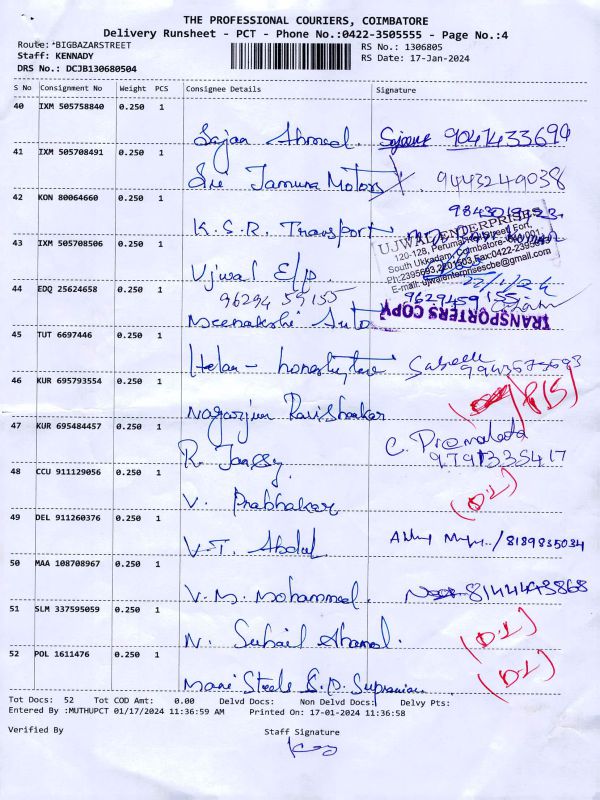 THE PROFESSIONAL COURIERS, COIMBATORE
Delivery Runsheet - PCT - Phone No.:0422-3505555 - Page No.:4
Route: *BIGBAZARSTREET
Staff: KENNADY
DRS No.: DCJB130680504
RS No.: 1306805
RS Date: 17-Jan-2024
S No Consignment No Weight PCS Consignee Details Signature
40 IXM 505758840 0.250 1
Sajan Ahmed. 9047433699
41 IXM 505708491 0.250 1
Sri Jamuna Motors 9443249038
42 KON 80064660 0.250 1
K.S.R. Transport
43 IXM 505708506 0.250 1
UJWAL ENTERPRISES
120-128, Perumal Street, Fort,
South Ukkadam, Coimbatore-641 001.
E-mail: ujwalenterprisescbe@gmail.com
Ujwal E/p.
44 EDQ 25624658 0.250 1
96294 59155 9629459155
TRANSPORTERS COPY
Meenakshi Auto
45 TUT 6697446 0.250 1
46 KUR 695793554 0.250 1
Nagarjun Ravishankar
47 KUR 695484457 0.250 1
C. Premalatha
9791335417
R. Jansy.
48 CCU 911129056 0.250 1
V. Prabhakar (D.L)
49 DEL 911260376 0.250 1
V.T. Abdul 8189835034
50 MAA 108708967 0.250 1
V.M. Mohammed. 8144493868
51 SLM 337595059 0.250 1
N. Suhail Ahamed. (D.L)
52 POL 1611476 0.250 1
Mani Steels (D.L)
Tot Docs: 52 Tot COD Amt: 0.00 Delvd Docs: Non Delvd Docs: Delvy Pts:
Entered By :MUTHUPCT 01/17/2024 11:36:59 AM Printed On: 17-01-2024 11:36:58
Verified By Staff Signature